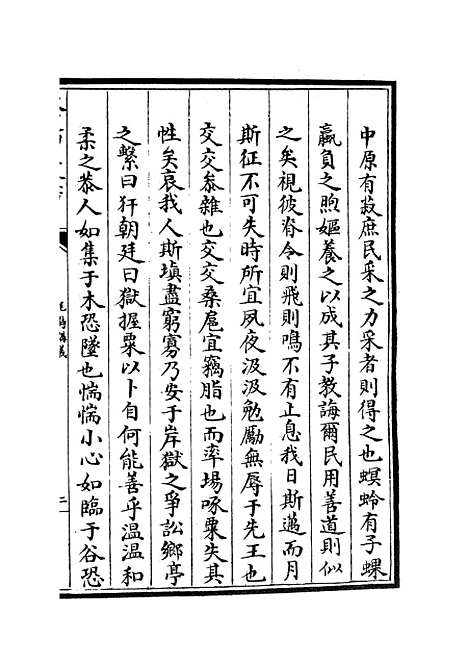 中原有菽庶民采之力采者則得之也螟蛉有子蜾
蠃負之煦嫗養之以成其子教誨爾民用善道則似
之矣視彼脊令則飛則鳴不有止息我日斯邁而月
斯征不可失時所宜夙夜汲汲勉勵無辱于先王也
交交叅雜也交交桑扈宜竊脂也而率場啄粟失其
性矣哀我人斯填盡窮寡乃安于岸獄之爭訟鄉亭
之繫曰犴朝廷曰獄握粟以卜自何能善乎温温和
柔之恭人如集于木恐墜也惴惴小心如臨于谷恐
毛詩講義